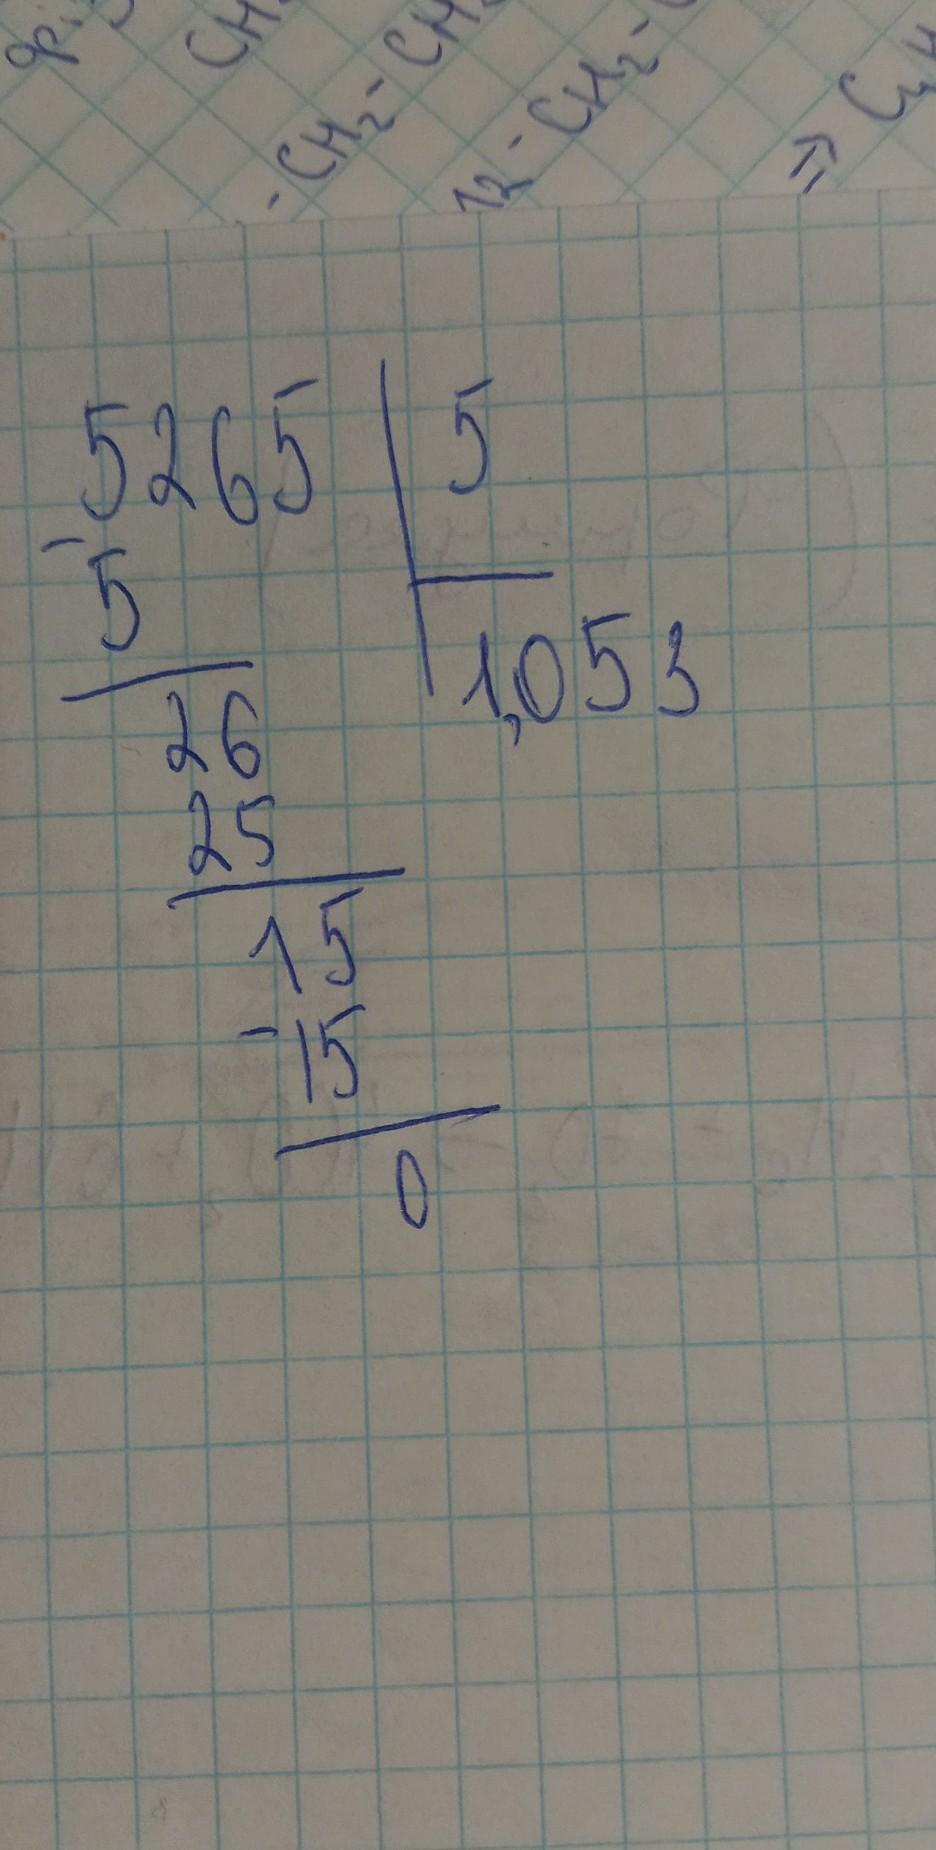 CH
-CH₂-CH
12-CH₂-
=> C
5265 | 5
- 5 | 1,053
26
25
15
- 15
0